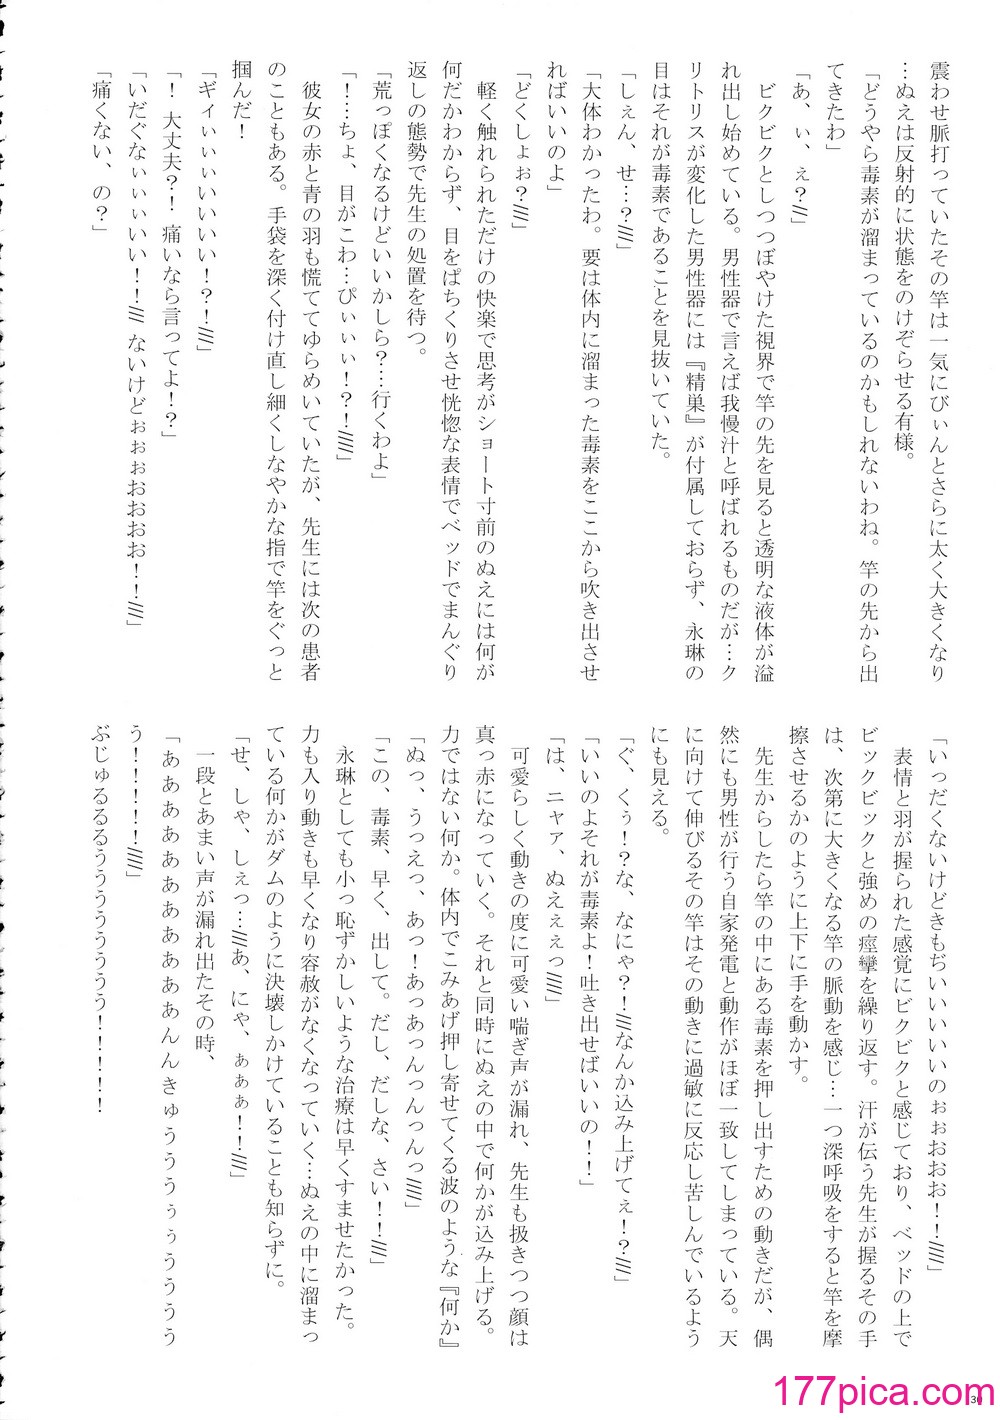 震わせ脈打っていたその竿は一気にびぃんとさらに太く大きくなり
…ぬえは反射的に状態をのけぞらせる有様。
「どうやら毒素が溜まっているのかもしれないわね。竿の先から出
てきたわ」
「あ、ぃ、ぇ?///」
ビクビクとしつつぼやけた視界で竿の先を見ると透明な液体が溢
れ出し始めている。男性器で言えば我慢汁と呼ばれるものだが…ク
リトリスが変化した男性器には『精巣』が付属しておらず、永琳の
目はそれが毒素であることを見抜いていた。
「しぇん、せ…?///」
「大体わかったわ。要は体内に溜まった毒素をここから吹き出させ
ればいいのよ」
「どくしょぉ?///」
軽く触れられただけの快楽で思考がショート寸前のぬえには何が
何だかわからず、目をぱちくりさせ恍惚な表情でベッドでまんぐり
返しの態勢で先生の処置を待つ。
「荒っぽくなるけどいいかしら?…行くわよ」
「!…ちょ、目がこわ…ぴぃぃぃ!?!////」
彼女の赤と青の羽も慌ててゆらめいていたが、先生には次の患者
のこともある。手袋を深く付け直し細くしなやかな指で竿をぐっと
掴んだ!
「ギィぃぃぃいいいい!?!////」
「! 大丈夫?! 痛いなら言ってよ!?」
「いだぐなぃぃぃいい!!/// ないけどぉぉぉおおおお!!////」
「痛くない、の?」
「いっだくないけどきもぢいいいいいのぉぉおおお!!////」
表情と羽が握られた感覚にビクビクと感じており、ベッドの上で
ビックビックと強めの痙攣を繰り返す。汗が伝う先生が握るその手
は、次第に大きくなる竿の脈動を感じ…一つ深呼吸をすると竿を摩
擦させるかのように上下に手を動かす。
先生からしたら竿の中にある毒素を押し出すための動きだが、偶
然にも男性が行う自家発電と動作がほぼ一致してしまっている。天
に向けて伸びるその竿はその動きに過敏に反応し苦しんでいるよう
にも見える。
「ぐ、くぅ!?な、なにゃ?!///なんか込み上げてぇ!?////」
「いいのよそれが毒素よ!吐き出せばいいの!!」
「は、ニャァ、ぬえぇぇっ////」
可愛らしく動きの度に可愛い喘ぎ声が漏れ、先生も扱きつつ顔は
真っ赤になっていく。それと同時にぬえの中で何かが込み上げる。
力ではない何か。体内でこみあげ押し寄せてくる波のような『何か』
「ぬっ、うっえっ、あっ!あっあっんっんっんっ////」
「この、毒素、早く、出して。だし、だしな、さい!!////」
永琳としても小っ恥ずかしいような治療は早くすませたかった。
力も入り動きも早くなり容赦がなくなっていく…ぬえの中に溜まっ
ている何かがダムのように決壊しかけていることも知らずに。
「せ、しゃ、しぇっ…///あ、にゃ、ぁぁぁ!!////」
一段とあまい声が漏れ出たその時、
「ぁああああああああああぁあんんきゅうううぅぅうううう
う!!!!!!////」
ぶじゅるるるううううううううう!!!!!
177pica.com
30